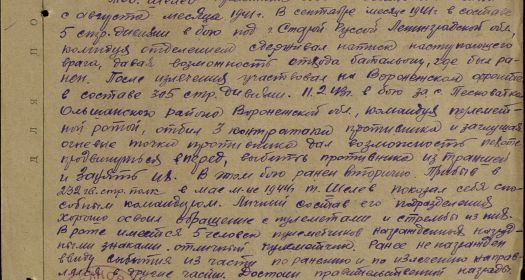 с августа месяца 1941г. В сентябре месяце 1941г. в составе
5 стр. дивизии в бою под г. Старой Руссой Ленинградской обл.
командуя отделением сдерживал натиск наступающего
врага, давая возможность отхода батальону, где был ра-
нен. После излечения участвовал на Воронежском фронте
в составе 305 стр. дивизии. 11.2.43г. в бою за с. Песковатка
Ольшанского района Воронежской обл., командуя пулемет-
ной ротой, отбил 3 контратаки противника и заглушая
огневые точки противника дал возможность пехоте
продвинуться вперед, выбить противника из траншей
и занять их. В этом бою ранен вторично. Прибыв в
232 гв. стр. полк в мае м-це 1944г. т. Шелев показал себя спо-
собным командиром. Личный состав его подразделения
хорошо освоил обращение с пулеметами и стрельбы из них.
В роте имеется 5 человек пулеметчиков награжденных нагруд-
ными знаками "отличный пулеметчик". Ранее не награжден
ввиду убытия из части по ранению и по излечению направ-
лялся в другие части. Достоин правительственной награды